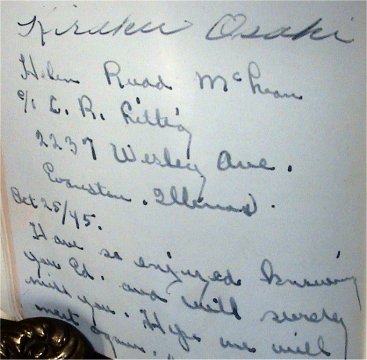 Osaki
Helen Ruad McLean
c/o C. R. Littig
2237 Wesley Ave.
Evanston, Illinois.
Oct 25/45.
Have so enjoyed knowing
you Ed. and will surely
miss you. Hope we will
meet again,